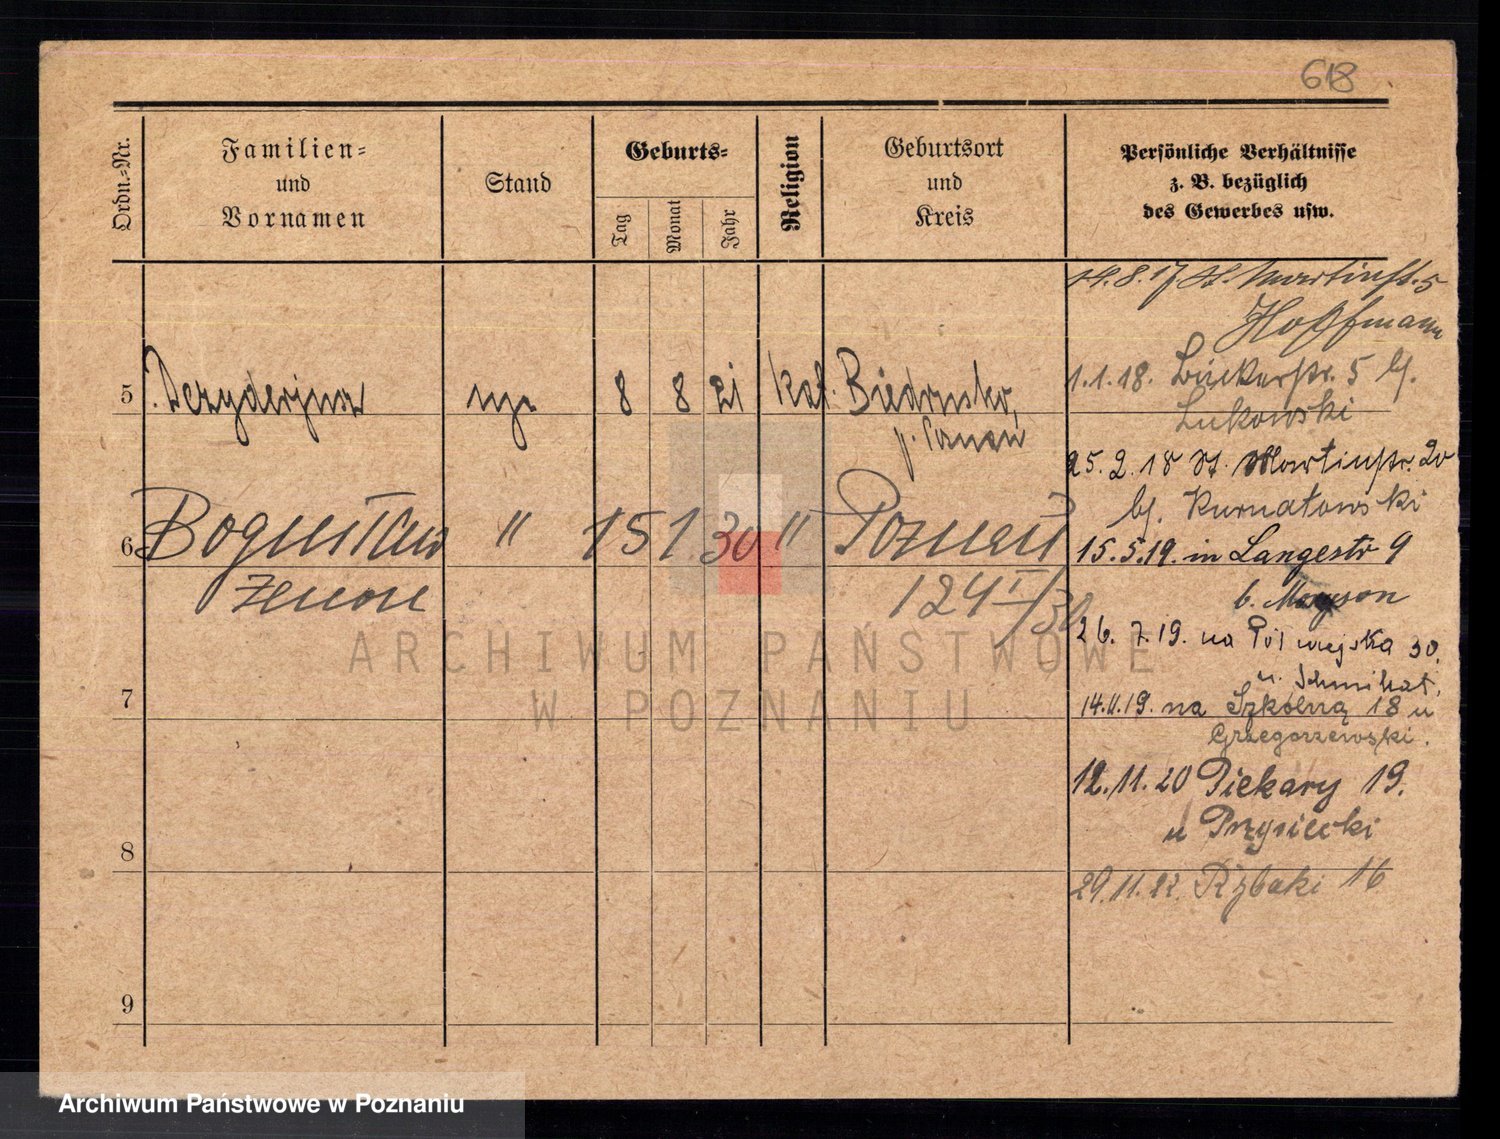 618
Ordn.-Nr.
Familien-
und
Vornamen
Stand
Geburts-
Tag
Monat
Jahr
Religion
Geburtsort
und
Kreis
Persönliche Verhältnisse
z. B. bezüglich
des Gewerbes usw.
14.8.17. St. Martinstr. 5
Hoffmann
5 Dezyderjusz 8 8 21 kat. Biedrusko,
p. Poznań
1.1.18. 5 b/.
Łukowski
25.2.18 St. Martinstr. 20
b/. Kurnatowski
6 Bogusław " 15 1 30 " Poznań
Zenon
124 I/30
15.5.19. in Langestr 9
b.
26.7.19. na Półwiejska 30.
u.
7
14.11.19. na Szkolną 18 u
Grzegorzewski.
12.11.20 Piekary 19.
u Przysiecki
8
29.11.22. Rybaki 16
9
ARCHIWUM PAŃSTWOWE
W POZNANIU
Archiwum Państwowe w Poznaniu